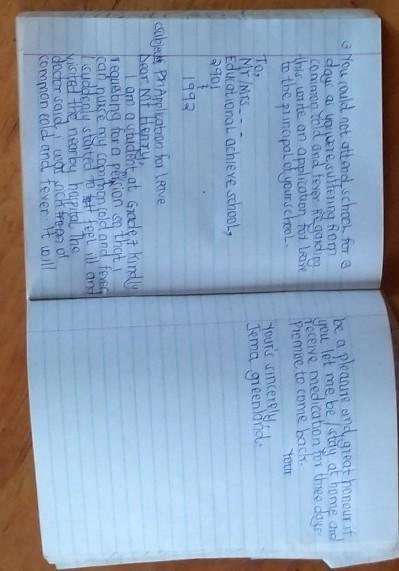 You could not attend school for 3
days as you were suffering from
common cold and fever regarding
this write an application for leave
to the principal of your school.
To,
Mr/Mrs ---
Educational achieve school,
2901
1992
Subject Application for Leave
Dear Mr Henry,
I am a student at Grade 7 kindly
requesting for permission so that I
can nurse my common cold and fever,
suddenly started to feel ill and
visited the nearby hospital the
doctor said, I was
common cold and fever. It will
be a pleasure and great honour if
you let me be / stay at home and
receive medication for three days.
Promise to come back. Your
Your's sincerely,
Jema greenland.